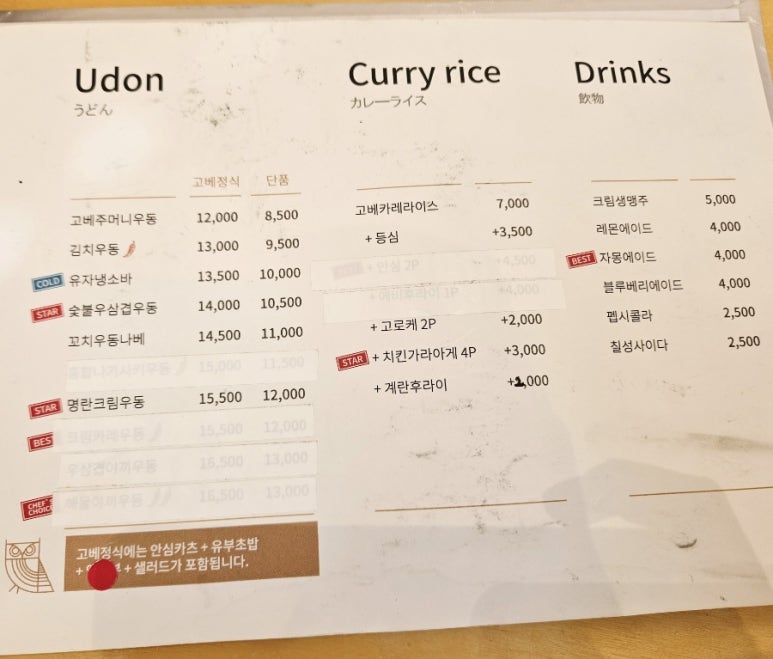 Udon
うどん
고베정식 단품
고베주머니우동 12,000 8,500
김치우동 13,000 9,500
COLD 유자냉소바 13,500 10,000
STAR 숯불우삼겹우동 14,000 10,500
꼬치우동나베 14,500 11,000
15,000 11,500
STAR 명란크림우동 15,500 12,000
BEST 크림카레우동 15,500 12,000
우삼겹야끼우동 16,500 13,000
CHEF'S CHOICE 해물야끼우동 16,500 13,000
고베정식에는 안심카츠 + 유부초밥
+ + 샐러드가 포함됩니다.
Curry rice
カレーライス
고베카레라이스 7,000
+ 등심 +3,500
+ 안심 2P +4,500
+ 에비후라이 1P +4,000
+ 고로케 2P +2,000
STAR + 치킨가라아게 4P +3,000
+ 계란후라이 +1,000
Drinks
飲物
크림생맥주 5,000
레몬에이드 4,000
BEST 자몽에이드 4,000
블루베리에이드 4,000
펩시콜라 2,500
칠성사이다 2,500